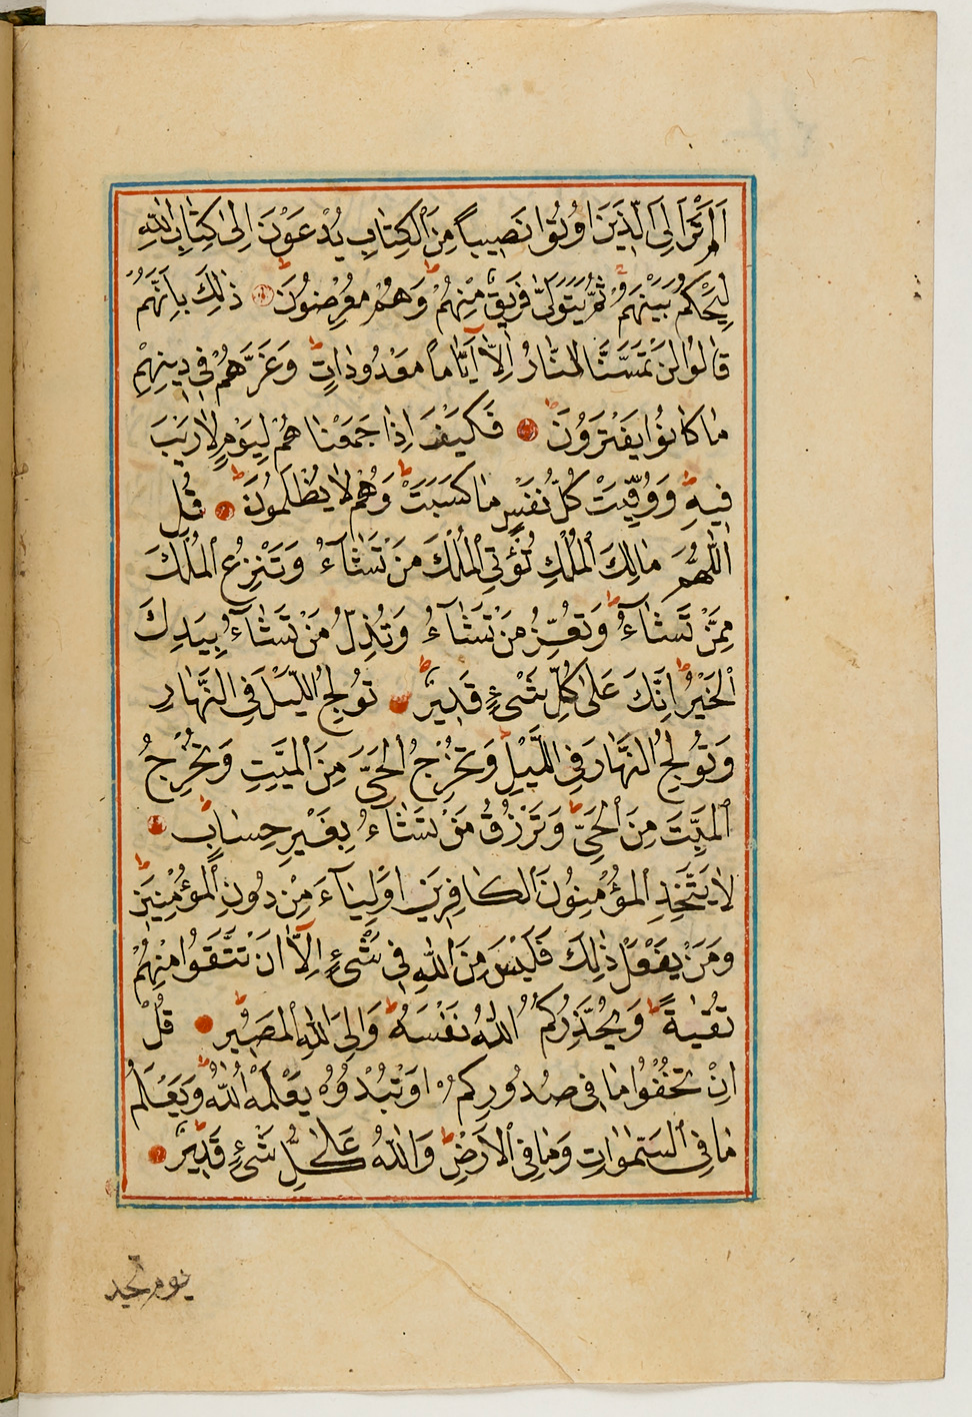 اَلَمْ تَرَ اِلَى الَّذٖينَ اُوتُوا نَصٖيباً مِنَ الْكِتَابِ يُدْعَوْنَ اِلٰى كِتَابِ اللّٰهِ
لِيَحْكُمَ بَيْنَهُمْ ثُمَّ يَتَوَلّٰى فَرٖيقٌ مِنْهُمْ وَهُمْ مُعْرِضُونَ ذٰلِكَ بِاَنَّهُمْ
قَالُوا لَنْ تَمَسَّنَا النَّارُ اِلَّٓا اَيَّاماً مَعْدُودَاتٍ وَغَرَّهُمْ فٖي دٖينِهِمْ
مَا كَانُوا يَفْتَرُونَ فَكَيْفَ اِذَا جَمَعْنَا هُمْ لِيَوْمٍ لَا رَيْبَ
فٖيهِ وَوُفِّيَتْ كُلُّ نَفْسٍ مَا كَسَبَتْ وَهُمْ لَا يُظْلَمُونَ قُلِ
اللّٰهُمَّ مَالِكَ الْمُلْكِ تُؤْتِي الْمُلْكَ مَنْ تَشَٓاءُ وَتَنْزِعُ الْمُلْكَ
مِمَّنْ تَشَٓاءُ وَتُعِزُّ مَنْ تَشَٓاءُ وَتُذِلُّ مَنْ تَشَٓاءُ بِيَدِكَ
الْخَيْرُ اِنَّكَ عَلٰى كُلِّ شَىْءٍ قَدٖيرٌ تُولِجُ الَّيْلَ فِي النَّهَارِ
وَتُولِجُ النَّهَارَ فِي الَّيْلِ وَتُخْرِجُ الْحَيَّ مِنَ الْمَيِّتِ وَتُخْرِجُ
الْمَيِّتَ مِنَ الْحَيِّ وَتَرْزُقُ مَنْ تَشَٓاءُ بِغَيْرِ حِسَابٍ
لَا يَتَّخِذِ الْمُؤْمِنُونَ الْكَافِرٖينَ اَوْلِيَٓاءَ مِنْ دُونِ الْمُؤْمِنٖينَ
وَمَنْ يَفْعَلْ ذٰلِكَ فَلَيْسَ مِنَ اللّٰهِ فٖي شَىْءٍ اِلَّٓا اَنْ تَتَّقُوا مِنْهُمْ
تُقٰيةً وَيُحَذِّرُكُمُ اللّٰهُ نَفْسَهُ وَاِلَى اللّٰهِ الْمَصٖيرُ قُلْ
اِنْ تُخْفُوا مَا فٖي صُدُورِكُمْ اَوْ تُبْدُوهُ يَعْلَمْهُ اللّٰهُ وَيَعْلَمُ
مَا فِي السَّمٰوَاتِ وَمَا فِي الْاَرْضِ وَاللّٰهُ عَلٰى كُلِّ شَىْءٍ قَدٖيرٌ
يوم تجد